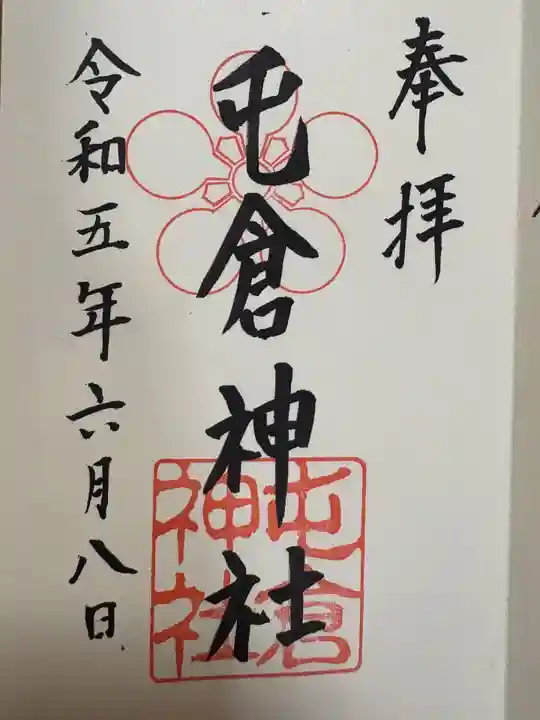 奉拝
屯倉神社
屯倉
神社
令和五年六月八日